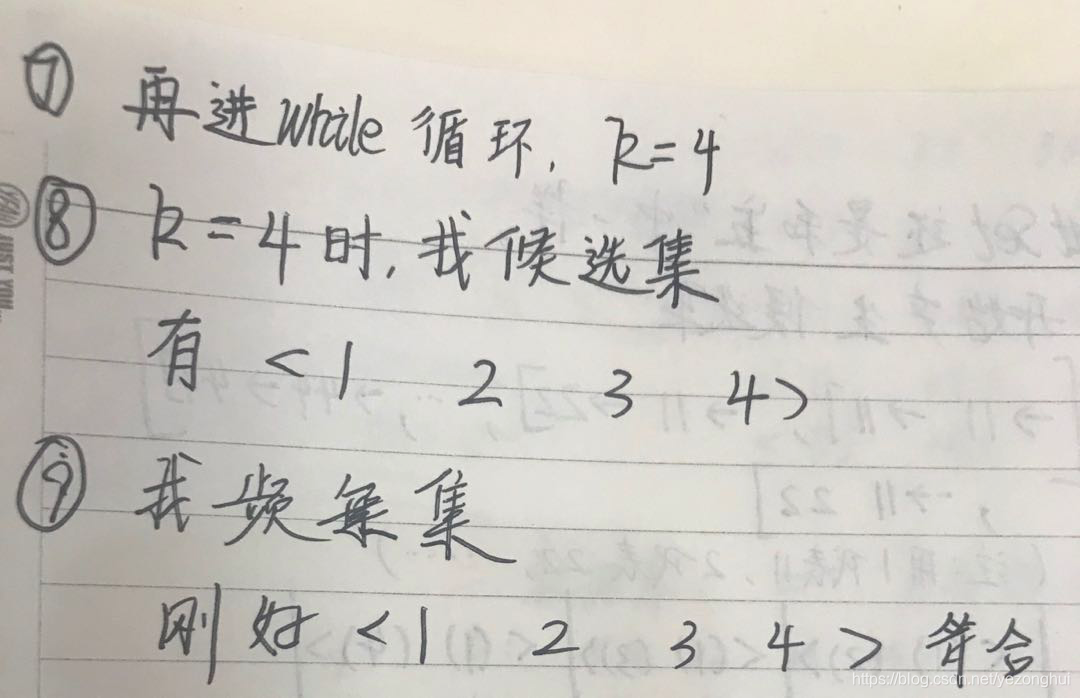 ⑦ 再进while循环, k=4
⑧ k=4时,我候选集
有 <1 2 3 4>
⑨ 我频繁集
刚好 <1 2 3 4> 符合
https://blog.csdn.net/yezonghui